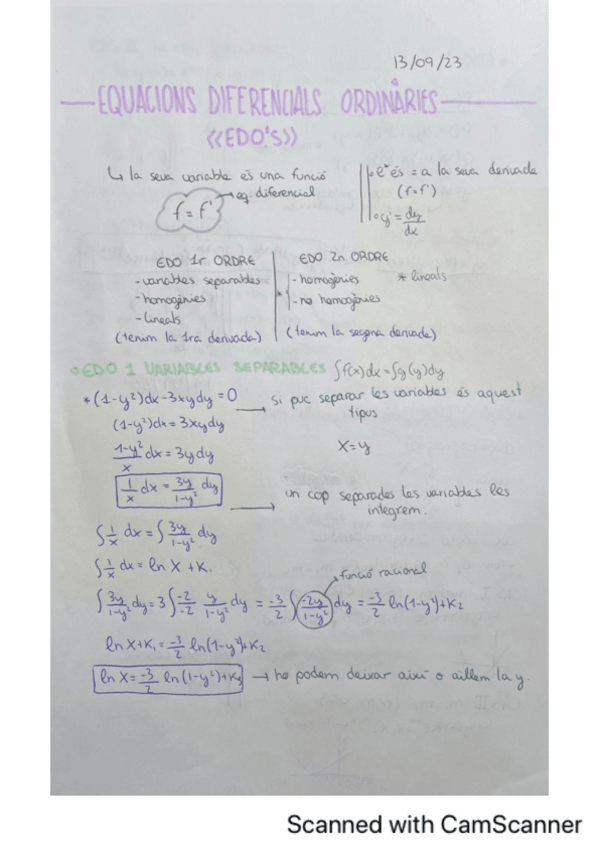 13/09/23
EQUACIONS DIFERENCIALS ORDINÀRIES
«EDO's»
↳ la seva variable és una funció
→ eq. diferencial
f = f'
• eˣ és = a la seva derivada
(f=f')
• y' = dy/dx
EDO 1r ORDRE
- variables separables
- homogènies
- lineals
(tenim la 1ra derivada)
EDO 2n ORDRE
- homogènies
- no homogènies
* lineals
(tenim la segona derivada)
○ EDO 1 VARIABLES SEPARABLES ∫f(x)dx=∫g(y)dy
* (1-y²)dx-3xydy=0 → si puc separar les variables és aquest
tipus
(1-y²)dx=3xydy
x=y
1-y²/x dx = 3y dy
1/x dx = 3y/1-y² dy
→ un cop separades les variables les
integrem.
∫ 1/x dx = ∫ 3y/1-y² dy
∫ 1/x dx = ln x + K₁
→ funció racional
∫ 3y/1-y² dy = 3 ∫ -2/-2 y/1-y² dy = -3/2 ∫ -2y/1-y² dy = -3/2 ln(1-y²)+K₂
ln x+K₁ = -3/2 ln(1-y²)+K₂
ln x = -3/2 ln(1-y²)+K₃ → ho podem deixar així o aïllem la y.
Scanned with CamScanner